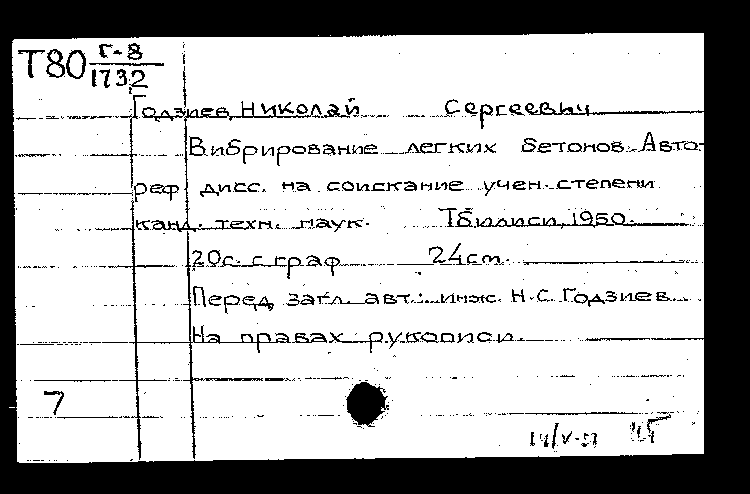 Т80 Г-8
1732
Годзиев, Николай Сергеевич
Вибрирование легких бетонов. Авто-
реф. дисс. на соискание учен. степени
канд. техн. наук. Тбилиси, 1950.
20с. с граф 24см.
Перед загл. авт.: инж. Н.С. Годзиев.
На правах рукописи.
7